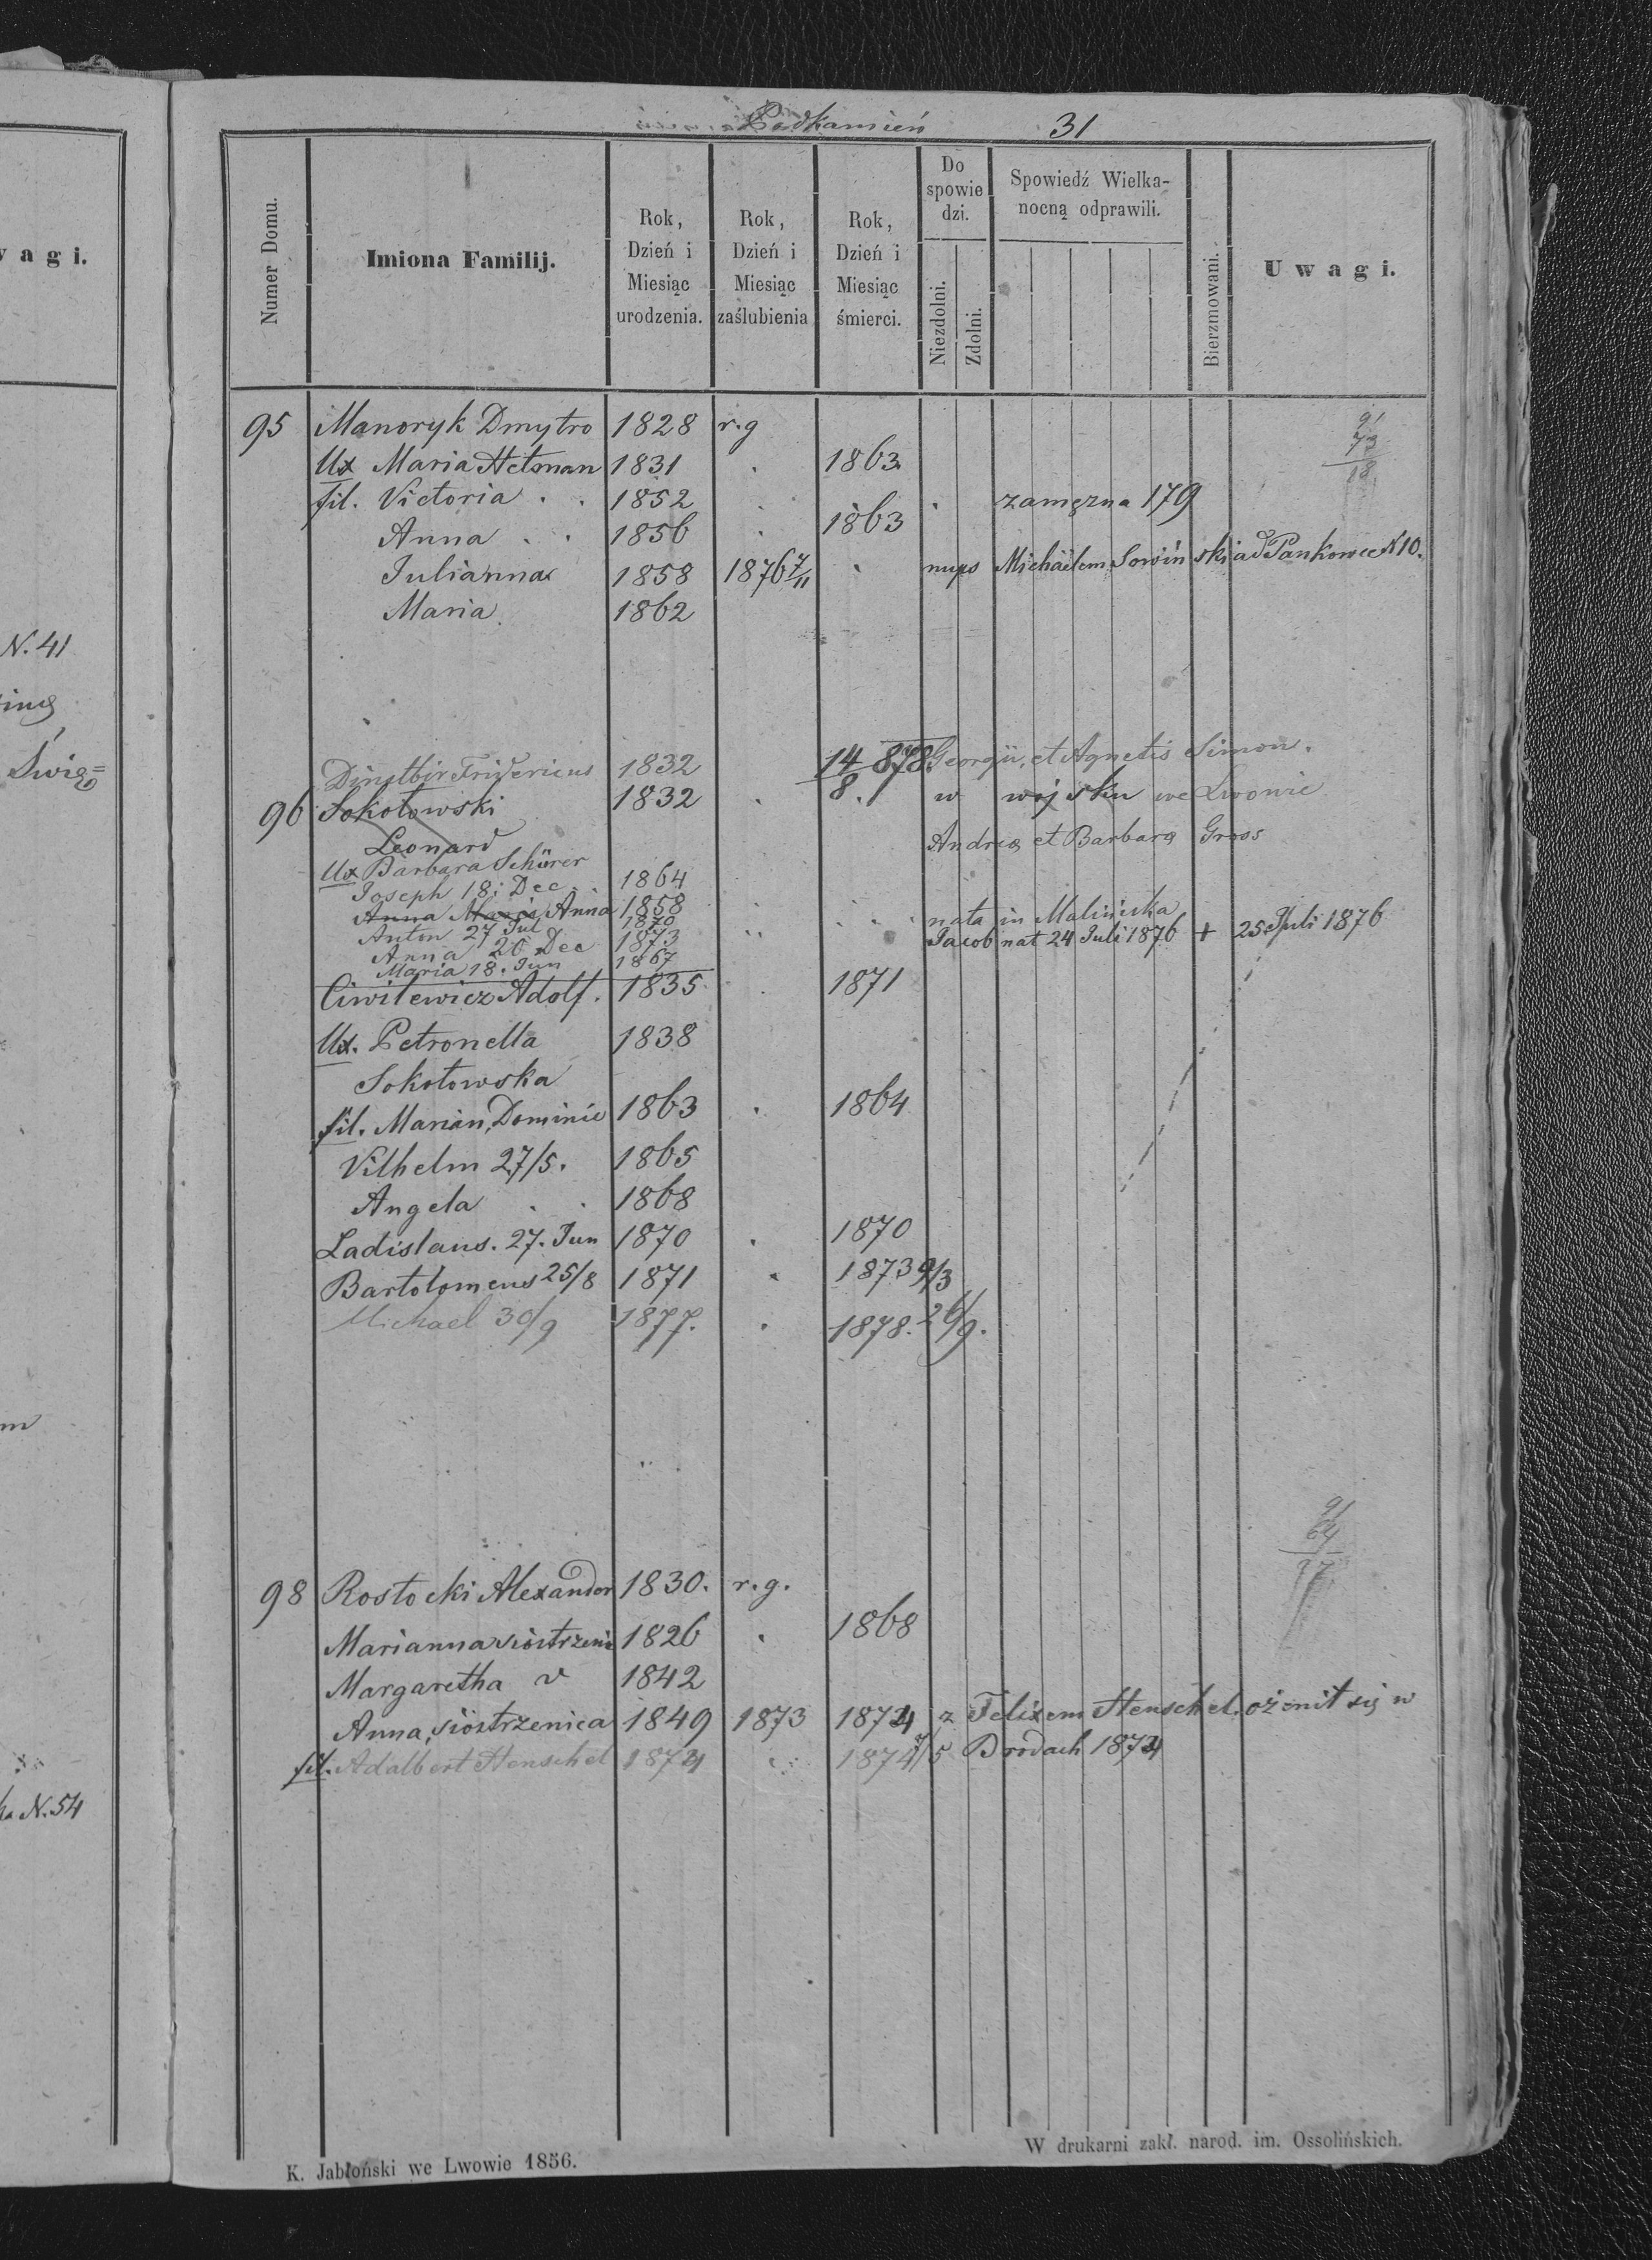 Podkamień 31
Numer Domu.
Imiona Familij.
Rok, Dzień i Miesiąc urodzenia.
Rok, Dzień i Miesiąc zaślubienia
Rok, Dzień i Miesiąc śmierci.
Do spowie dzi.
Niezdolni.
Zdolni.
Spowiedź Wielka-
nocną odprawili.
Bierzmowani.
Uwagi.
wagi.
N. 41
Świą=
N. 54
91
73
18
95 Manoryk Dmytro 1828 r.g
Ux Maria Hetman 1831 1863
fil. Victoria 1852 zamężna 179
Anna 1856 1863
Julianna 1858 1876 7/11 nups Michäelem Sowiński ad Pankowce N 10.
Maria 1862
Fridericus 1832 14/8 878 Georgii, et Agnetis Simon.
96 Sokołowski 1832 w wojsku we Lwowie
Leonard Andreæ et Barbara Groos
Ux Barbara Schürer
Joseph 18. Dec. 1864
Anna Maria Anna 1858 nata in Maliniska
Anton 27 Jul 1870 Jacob nat 24 Juli 1876 + 25 Juli 1876
Anna 26 Dec 1873
Maria 18. Jun 1867
Ciwilewicz Adolf. 1835 1871
Ux. Petronella 1838
Sokołowska
fil. Marian, Dominic 1863 1864
Vilhelm 27/5. 1865
Angela 1868
Ladislaus. 27. Jun 1870 1870
Bartolomeus 25/8 1871 1873 9/3
Michael 30/9 1877. 1878. 26/9.
91
64
27
98 Rostocki Alexander 1830. r.g.
Marianna siostrzeni 1826 1868
Margaretha v 1842
Anna, siostrzenica 1849 1873 1874 z Felixem Henschel. ożenił się w
fil. Adalbert Henschel 1874 1874 /5 Brodach 1874
K. Jabłoński we Lwowie 1856.
W drukarni zakł. narod. im. Ossolińskich.